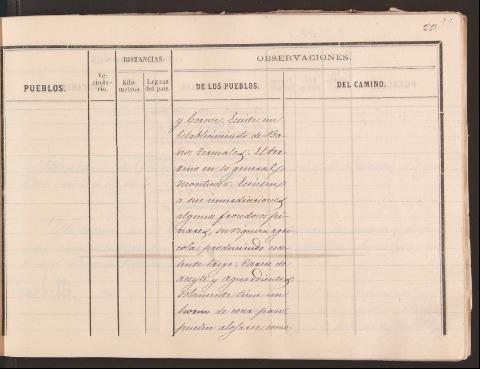 22
PUEBLOS.
Ve-
cinda-
rio.
DISTANCIAS.
Kiló-
metros.
Leguas
del país.
OBSERVACIONES.
DE LOS PUEBLOS.
DEL CAMINO.
y Existe un
establecimiento de Ba-
ños termales. El ter-
reno en lo general
montuoso. Existen
a sus inmediaciones
algunos frondosos pi-
nares, su riqueza agrí-
cola, produciendo
trigo. Carece de
aceyte y aguardientes
solamente tiene un
horno de cocer pan
pueden alojarse como